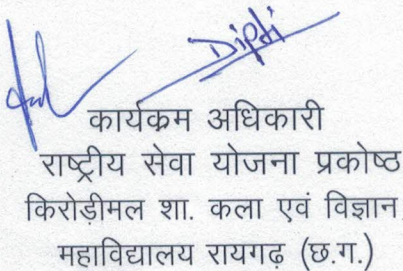 Dipti
कार्यक्रम अधिकारी
राष्ट्रीय सेवा योजना प्रकोष्ठ
किरोड़ीमल शा. कला एवं विज्ञान
महाविद्यालय रायगढ़ (छ.ग.)